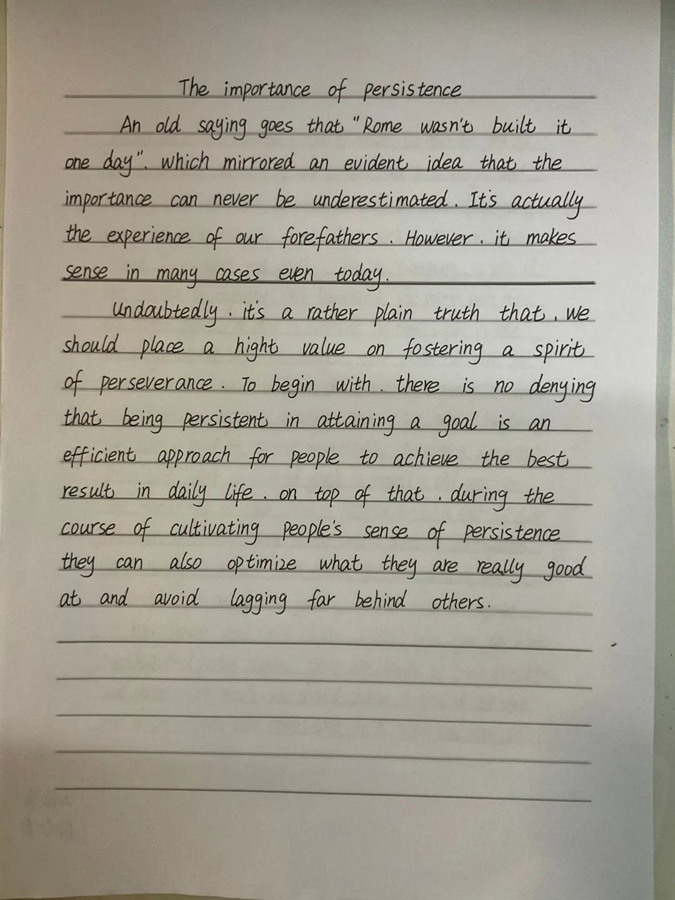 The importance of persistence
An old saying goes that "Rome wasn't built it
one day". which mirrored an evident idea that the
importance can never be underestimated. It's actually
the experience of our forefathers. However. it makes
sense in many cases even today.
Undoubtedly. it's a rather plain truth that. we
should place a hight value on fostering a spirit
of perseverance. To begin with. there is no denying
that being persistent in attaining a goal is an
efficient approach for people to achieve the best
result in daily life. on top of that. during the
course of cultivating people's sense of persistence
they can also optimize what they are really good
at and avoid lagging far behind others.